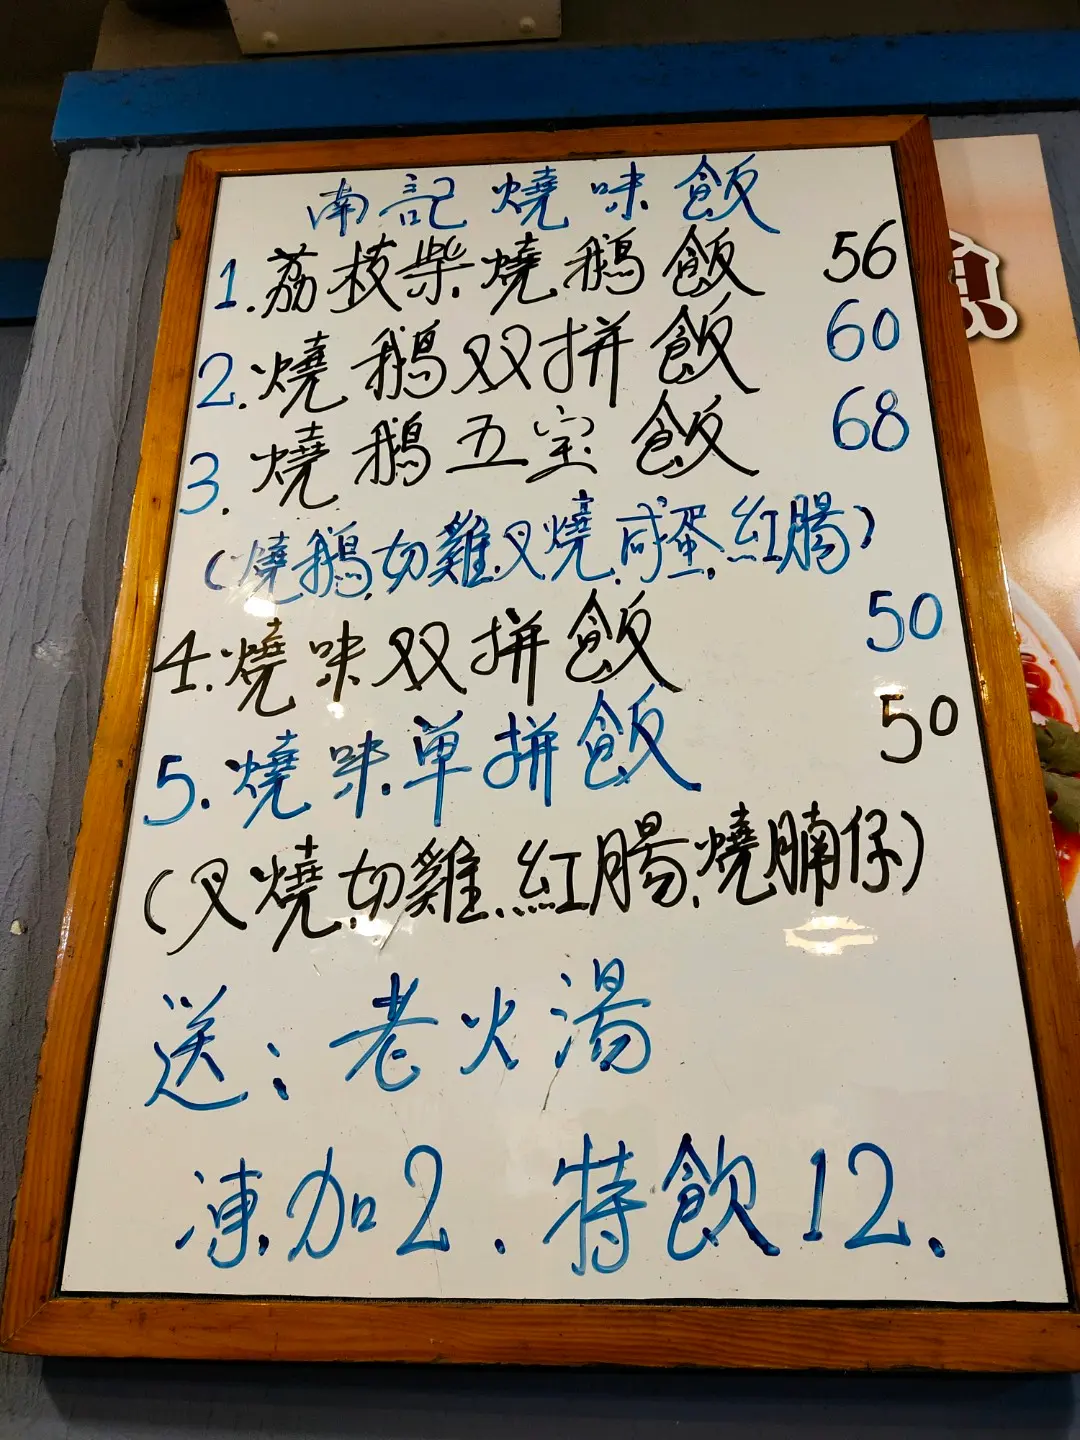 南記燒味飯
1.荔枝柴燒鵝飯 56
2.燒鵝双拼飯 60
3.燒鵝五宝飯 68
(燒鵝.切雞.叉燒.咸蛋.紅腸)
4.燒味双拼飯 50
5.燒味单拼飯 50
(叉燒.切雞.紅腸.燒腩仔)
送：老火湯
凍加2.特飲12.